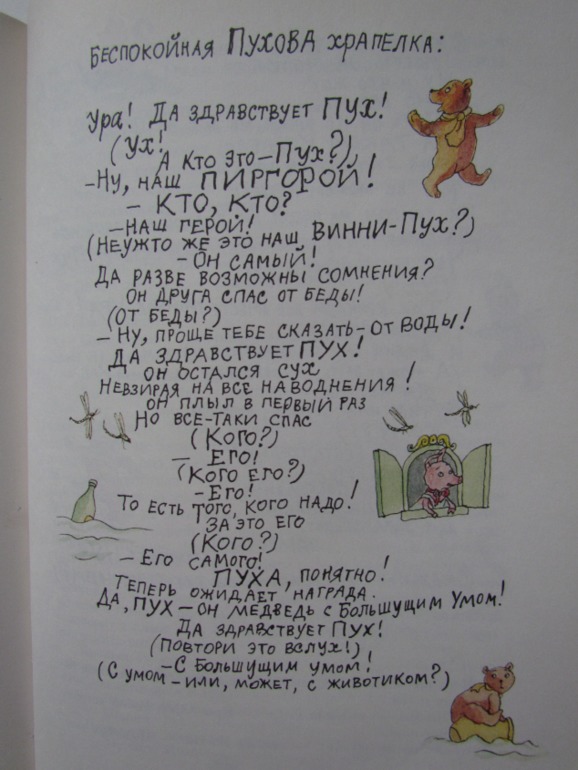 Беспокойная Пухова храпелка:
Ура! Да здравствует Пух!
(Ух!
А кто это – Пух?)
– Ну, наш ПИРГОРОЙ!
– Кто, кто?
– Наш герой!
(Неужто же это наш Винни-Пух?)
– Он самый!
Да разве возможны сомнения?
Он друга спас от беды!
(От беды?)
– Ну, проще тебе сказать – от воды!
Да здравствует Пух!
Он остался сух
Невзирая на все наводнения!
Он плыл в первый раз
Но все-таки спас
(Кого?)
– Его!
(Кого его?)
– Его!
То есть того, кого надо!
За это его
(Кого?)
– Его самого!
Пуха, понятно!
Теперь ожидает награда.
Да, Пух – он медведь с Большущим Умом!
Да здравствует Пух!
(Повтори это вслух!)
– С Большущим умом!
(С умом – или, может, с животиком?)